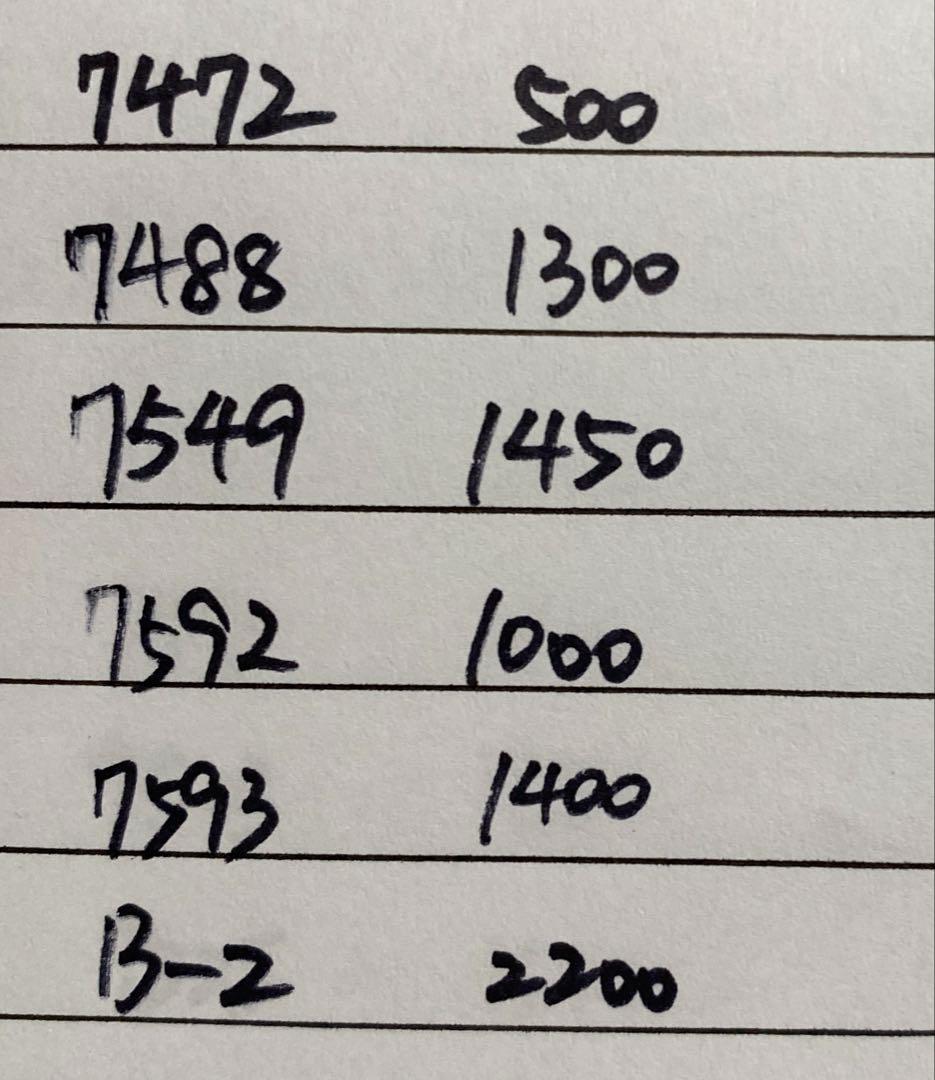 7472 500
7488 1300
7549 1450
7592 1000
7593 1400
B-2 2200